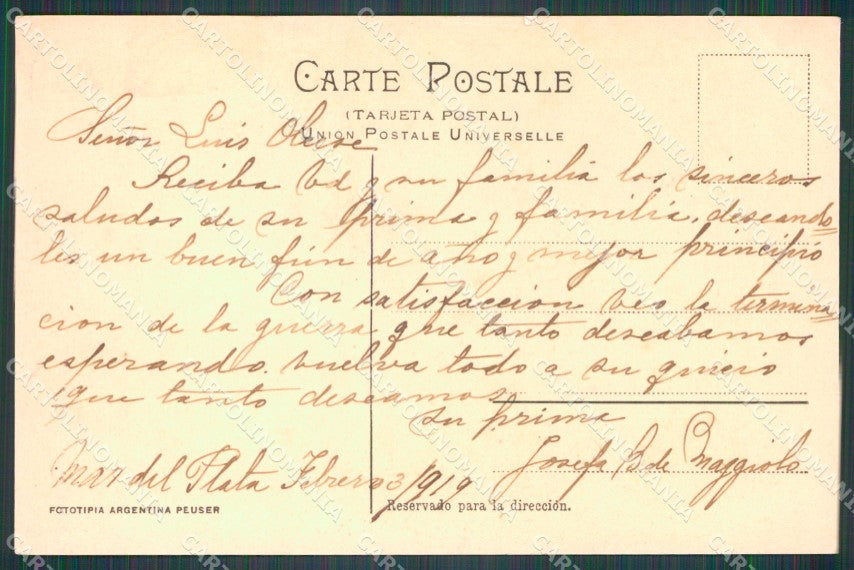 CARTE POSTALE
(TARJETA POSTAL)
UNION POSTALE UNIVERSELLE
Señor Luis
Reciba Vd y su familia los sinceros
saludos de su prima y familia, deseando=
les un buen fin de año y mejor principio
Con satisfaccion veo la termina=
cion de la guerra que tanto deseabamos
esperando vuelva todo a su quicio
que tanto deseamos
su prima
Josefa B de Maggiolo
Mar del Plata Febrero 3/1919
FOTOTIPIA ARGENTINA PEUSER
Reservado para la dirección.
CARTOLINOMANIA